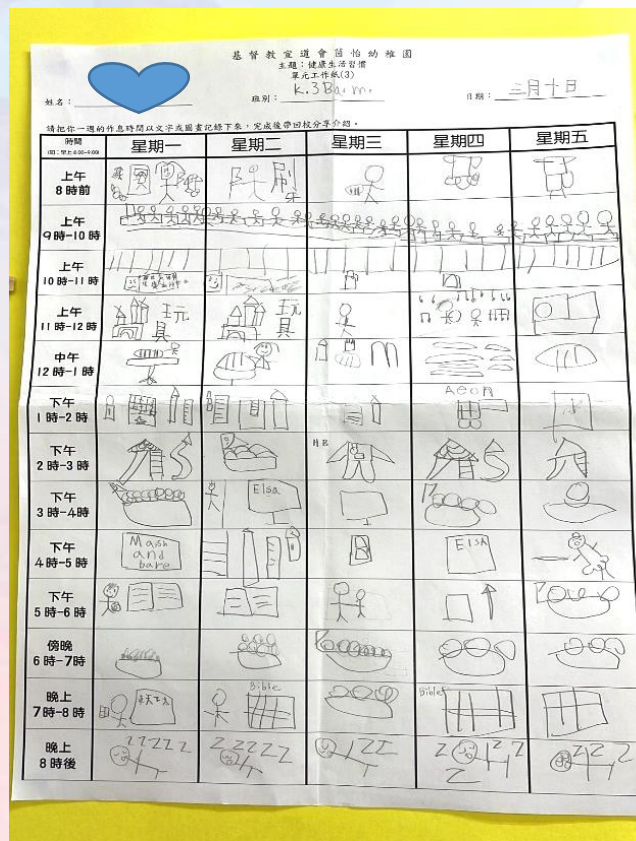 基督教宣道會茵怡幼稚園
主題：健康生活習慣
單元工作紙(3)
姓名： 班別：K.3B a.m. 日期：三月十日
請把你一週的作息時間以文字或圖畫記錄下來，完成後帶回校分享介紹。
時間 星期一 星期二 星期三 星期四 星期五
上午
8時前 刷牙
上午
9時-10時
上午
10時-11時
上午
11時-12時 玩具 玩具
中午
12時-1時
下午
1時-2時 Aeon
下午
2時-3時
下午
3時-4時 Elsa
下午
4時-5時 Mash and bare B Elsa
下午
5時-6時
傍晚
6時-7時
晚上
7時-8時 Bible Bible
晚上
8時後 ZZZZZ ZZZZZ ZZ